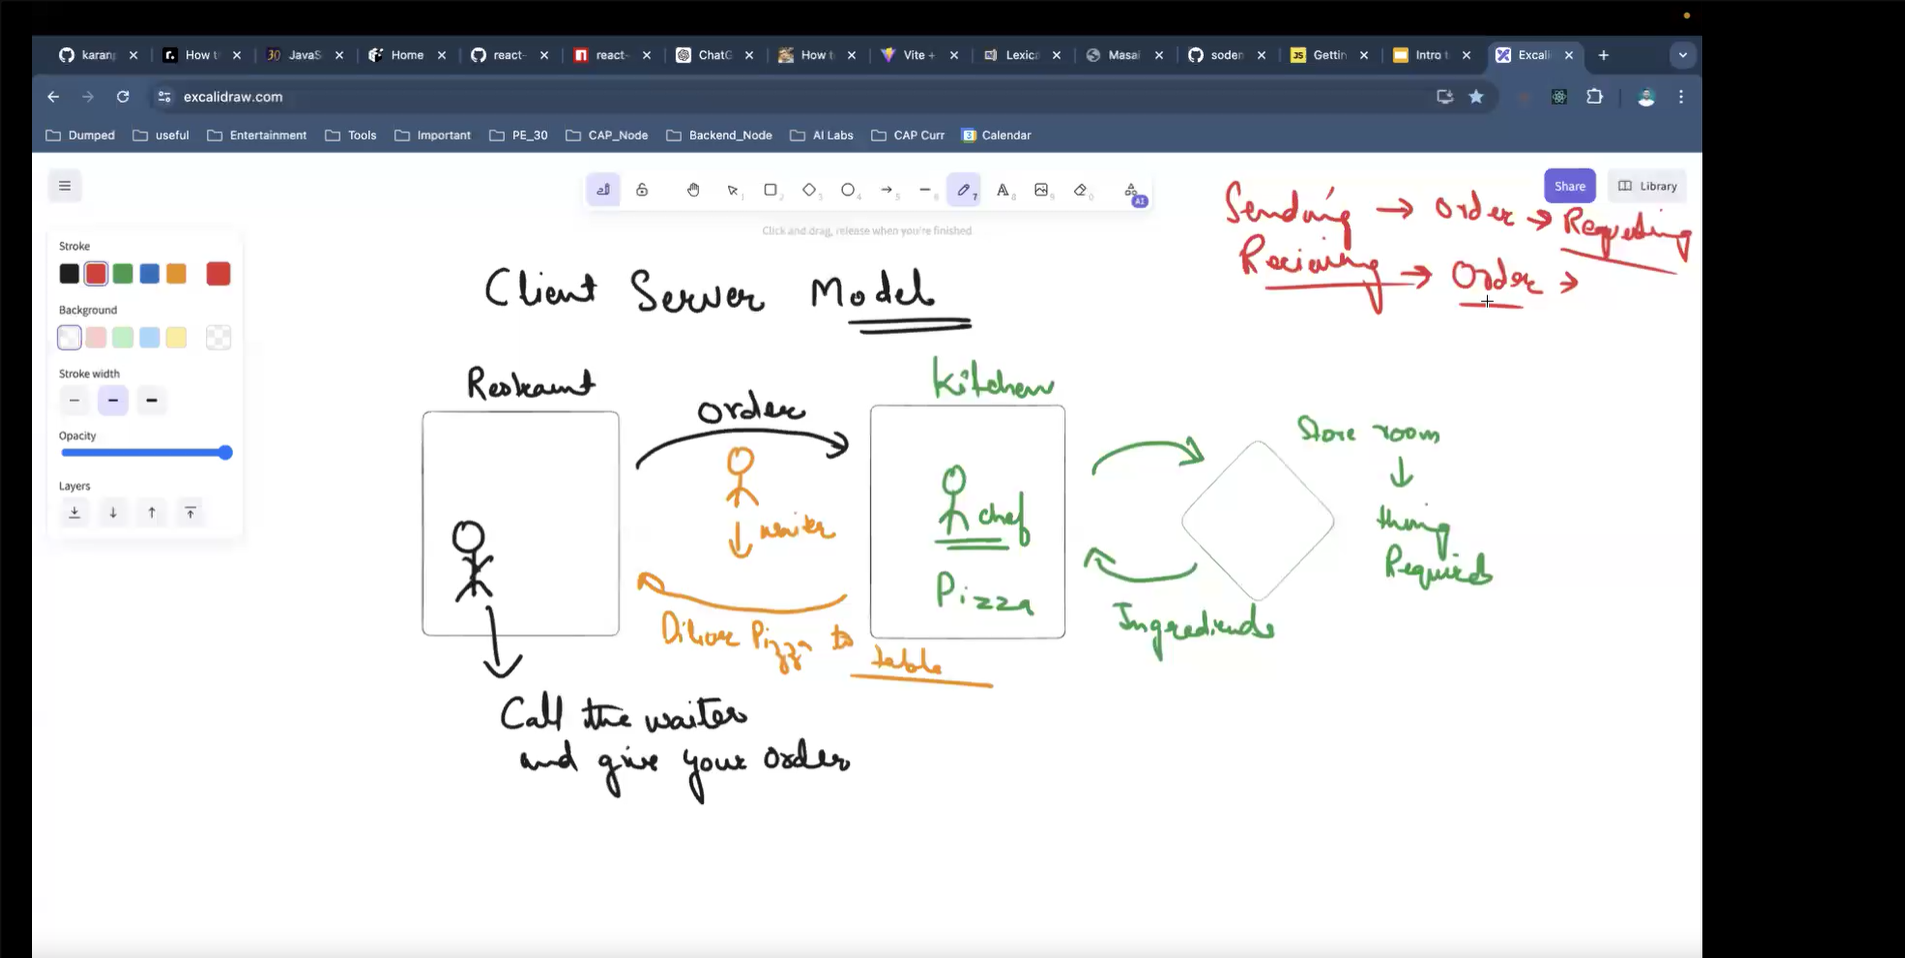 karanp
How t
JavaS
Home
react-
react-
ChatG
How t
Vite +
Lexica
Masai
soden
Gettin
Intro t
Excali
excalidraw.com
Dumped
useful
Entertainment
Tools
Important
PE_30
CAP_Node
Backend_Node
AI Labs
CAP Curr
Calendar
Share
Library
Click and drag, release when you're finished
Stroke
Background
Stroke width
Opacity
Layers
Sending → Order → Requesting
Recieving → Order →
Client Server Model
Restraunt
order
Kitchen
Store room
↓
thing
Required
waiter
chef
Pizza
Diliver Pizza to
table
Ingredients
Call the waiter
and give your order